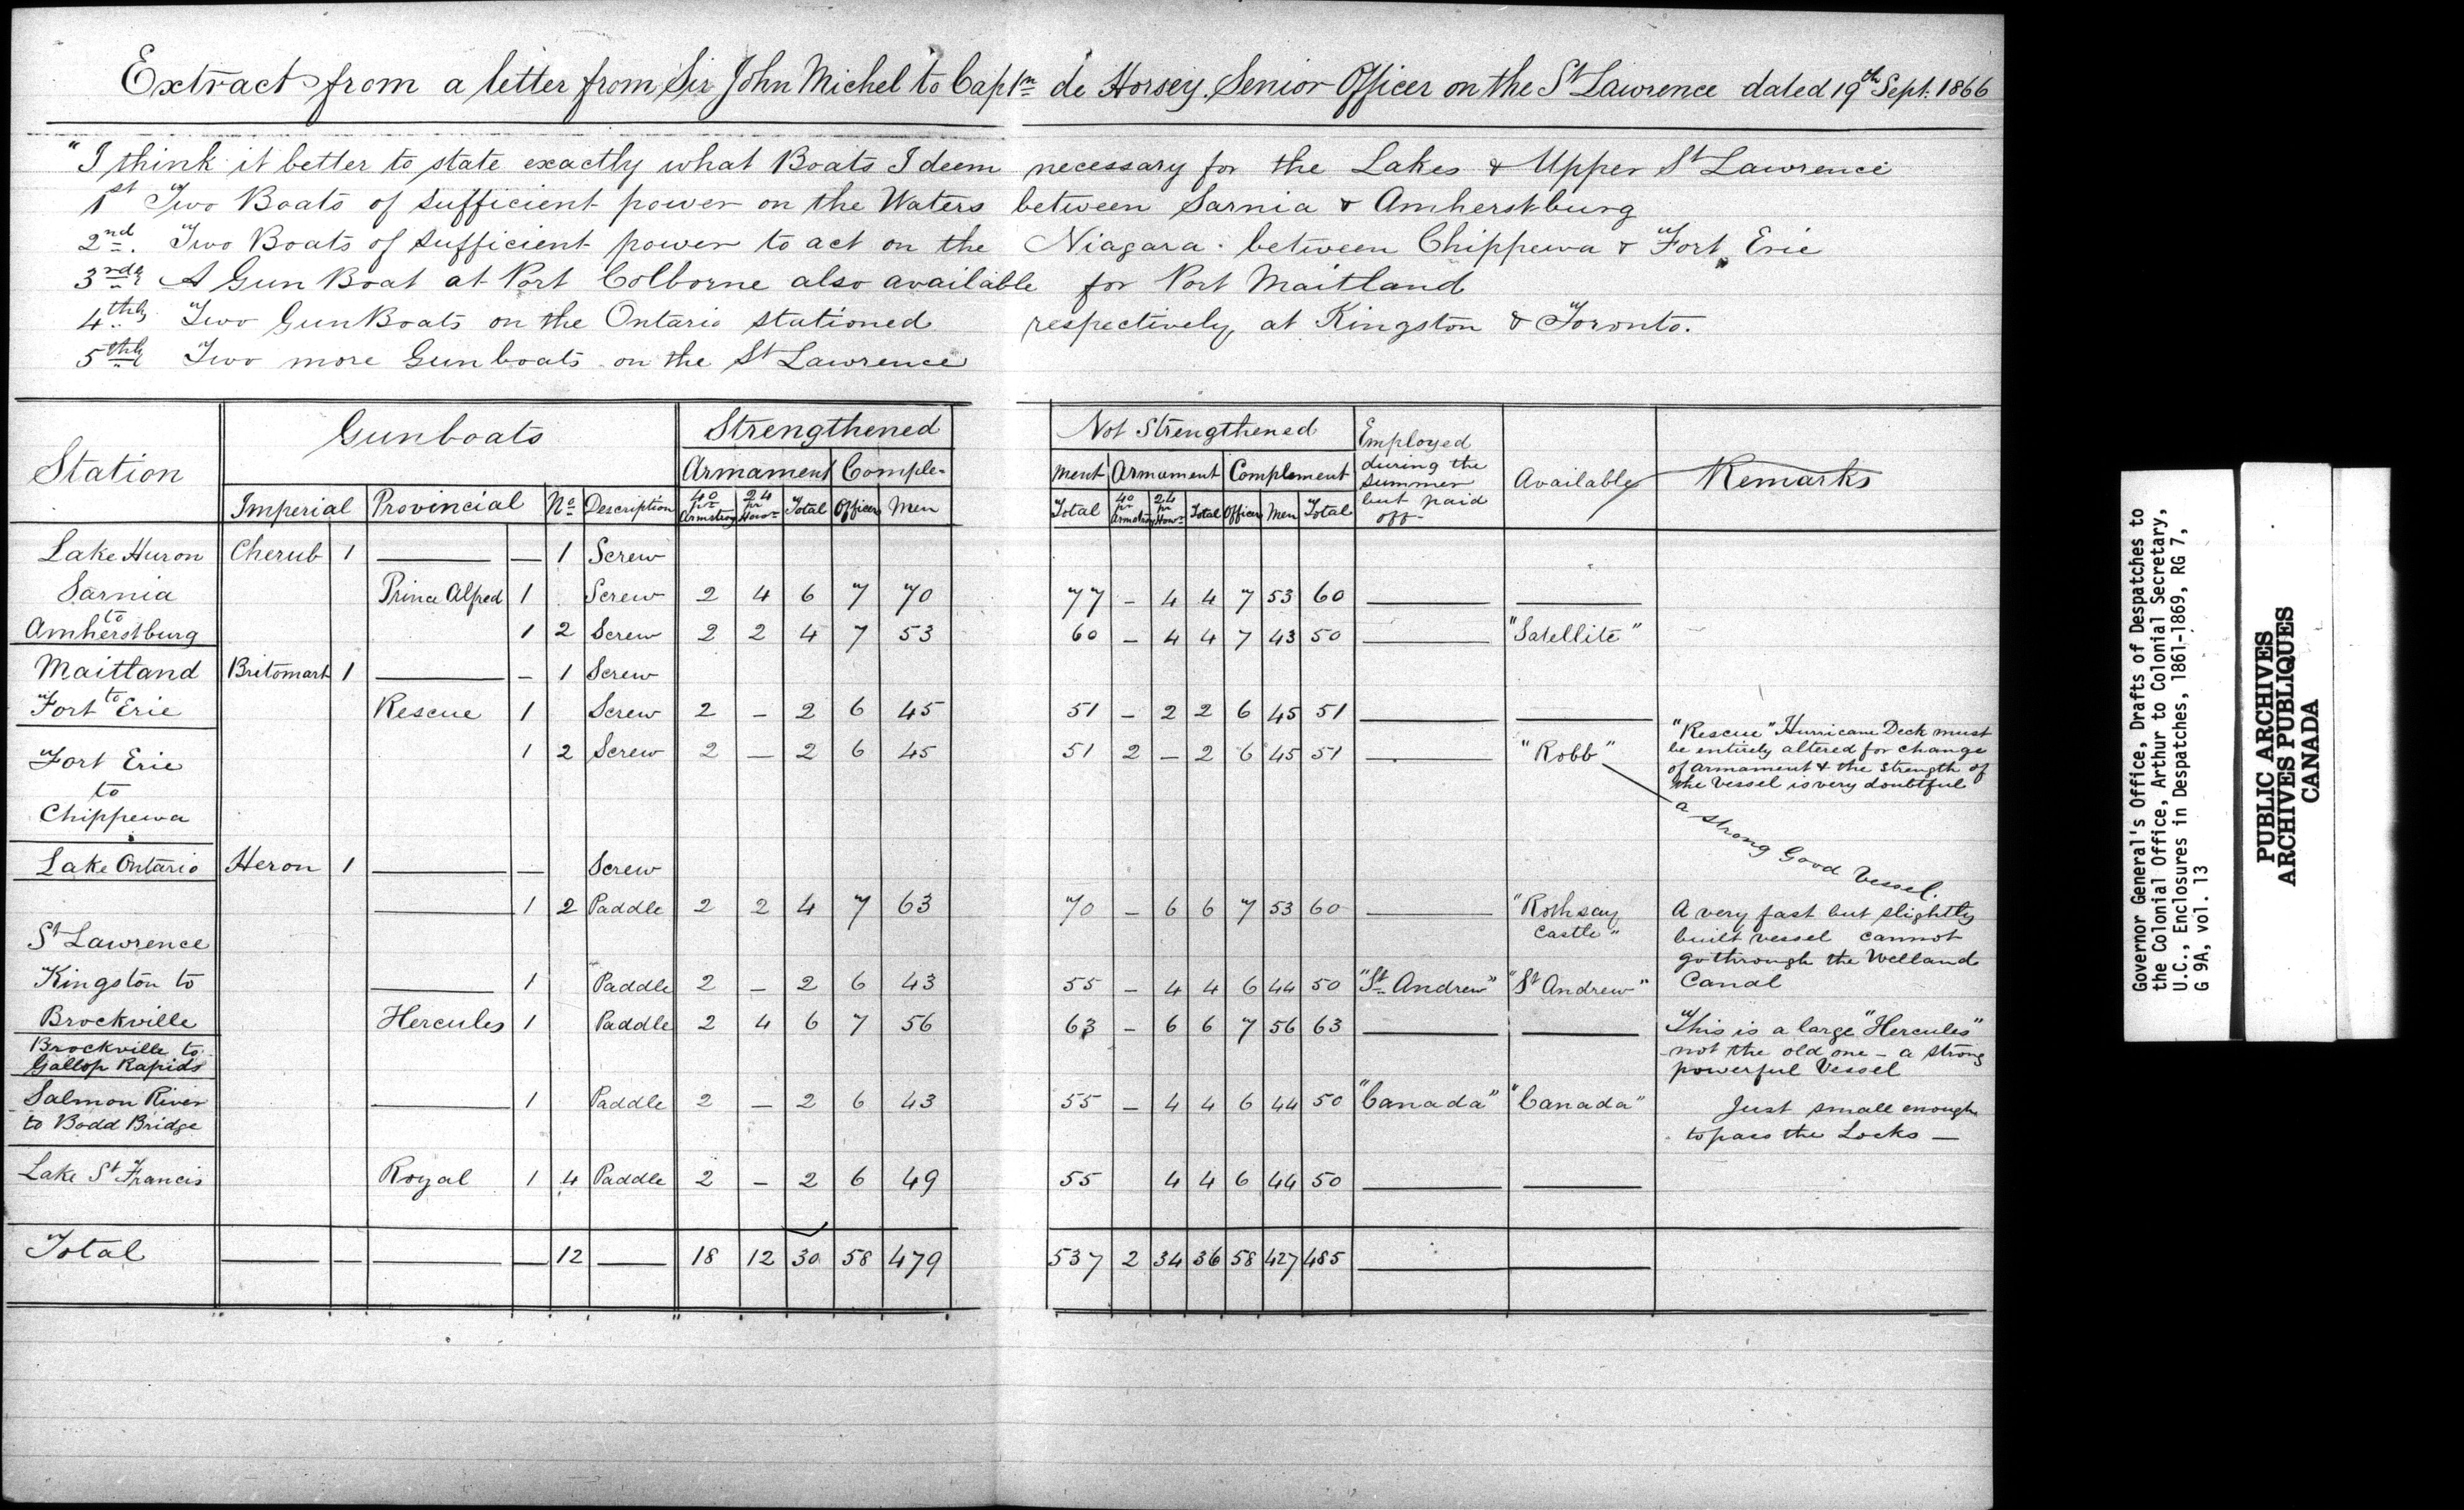 Extract from a letter from Sir John Michel to Captn de Horsey Senior Officer on the St Lawrence dated 19th Sept. 1866
"I think it better to state exactly what Boats I deem necessary for the Lakes & Upper St Lawrence
1st Two Boats of sufficient power on the Waters between Sarnia & Amherstburg
2nd. Two Boats of sufficient power to act on the Niagara. between Chippewa & Fort Erie
3rdly A Gun Boat at Port Colborne also available for Port Maitland
4thly Two GunBoats on the Ontario stationed respectively, at Kingston & Toronto.
5thly Two more Gunboats on the St Lawrence
Station Gunboats Strengthened Not Strengthened Employed during the summer but paid off Available Remarks
Armament Comple- ment Armament Complement
Imperial Provincial No Description 40 pr Armstrong 24 pr Howr Total Officers Men Total 40 pr Armstrong 24 pr Howr Total Officers Men Total
Lake Huron Cherub 1 — — 1 Screw
Sarnia Prince Alfred 1 Screw 2 4 6 7 70 77 - 4 4 7 53 60 — —
to
Amherstburg 1 2 Screw 2 2 4 7 53 60 - 4 4 7 43 50 — "Satellite"
Maitland Britomart 1 — - 1 Screw
to
Fort Erie Rescue 1 Screw 2 - 2 6 45 51 - 2 2 6 45 51 — —
"Rescue" Hurricane Deck must
be entirely altered for change
of armament & the strength of
the Vessel is very doubtful
Fort Erie 1 2 Screw 2 — 2 6 45 51 2 - 2 6 45 51 — "Robb" — a strong Good Vessel.
to
Chippewa
Lake Ontario Heron 1 — — Screw
— 1 2 Paddle 2 2 4 7 63 70 - 6 6 7 53 60 — "Rothsay Castle"
A very fast but slightly
built vessel cannot
go through the Welland
Canal
St Lawrence
Kingston to — 1 Paddle 2 - 2 6 43 55 - 4 4 6 44 50 "St Andrew" "St Andrew"
Brockville Hercules 1 Paddle 2 4 6 7 56 63 - 6 6 7 56 63 — —
This is a large "Hercules"
not the old one - a strong
powerful Vessel
Brockville to
Gallop Rapids
Salmon River — 1 Paddle 2 — 2 6 43 55 - 4 4 6 44 50 "Canada" "Canada"
to Bodd Bridge
Just small enough
to pass the Locks —
Lake St Francis Royal 1 4 Paddle 2 - 2 6 49 55 4 4 6 44 50 — —
Total — — — — 12 — 18 12 30 58 479 537 2 34 36 58 427 485 — —
Governor General's Office, Drafts of Despatches to
the Colonial Office, Arthur to Colonial Secretary,
U.C., Enclosures in Despatches, 1861-1869, RG 7,
G 9A, vol. 13
PUBLIC ARCHIVES
ARCHIVES PUBLIQUES
CANADA